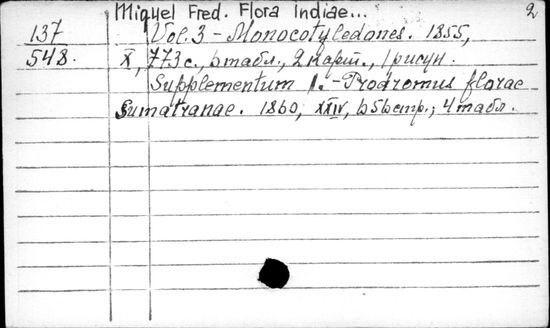 Miquel Fred. Flora Indiae... 2
137 Vol. 3 - Monocotyledones. 1855,
548. X, 773 с., 6 табл., 2 карт., 1 рисун.
Supplementum 1. - Prodromus florae
Sumatranae. 1860, XXIV, 656 стр.; 4 табл.